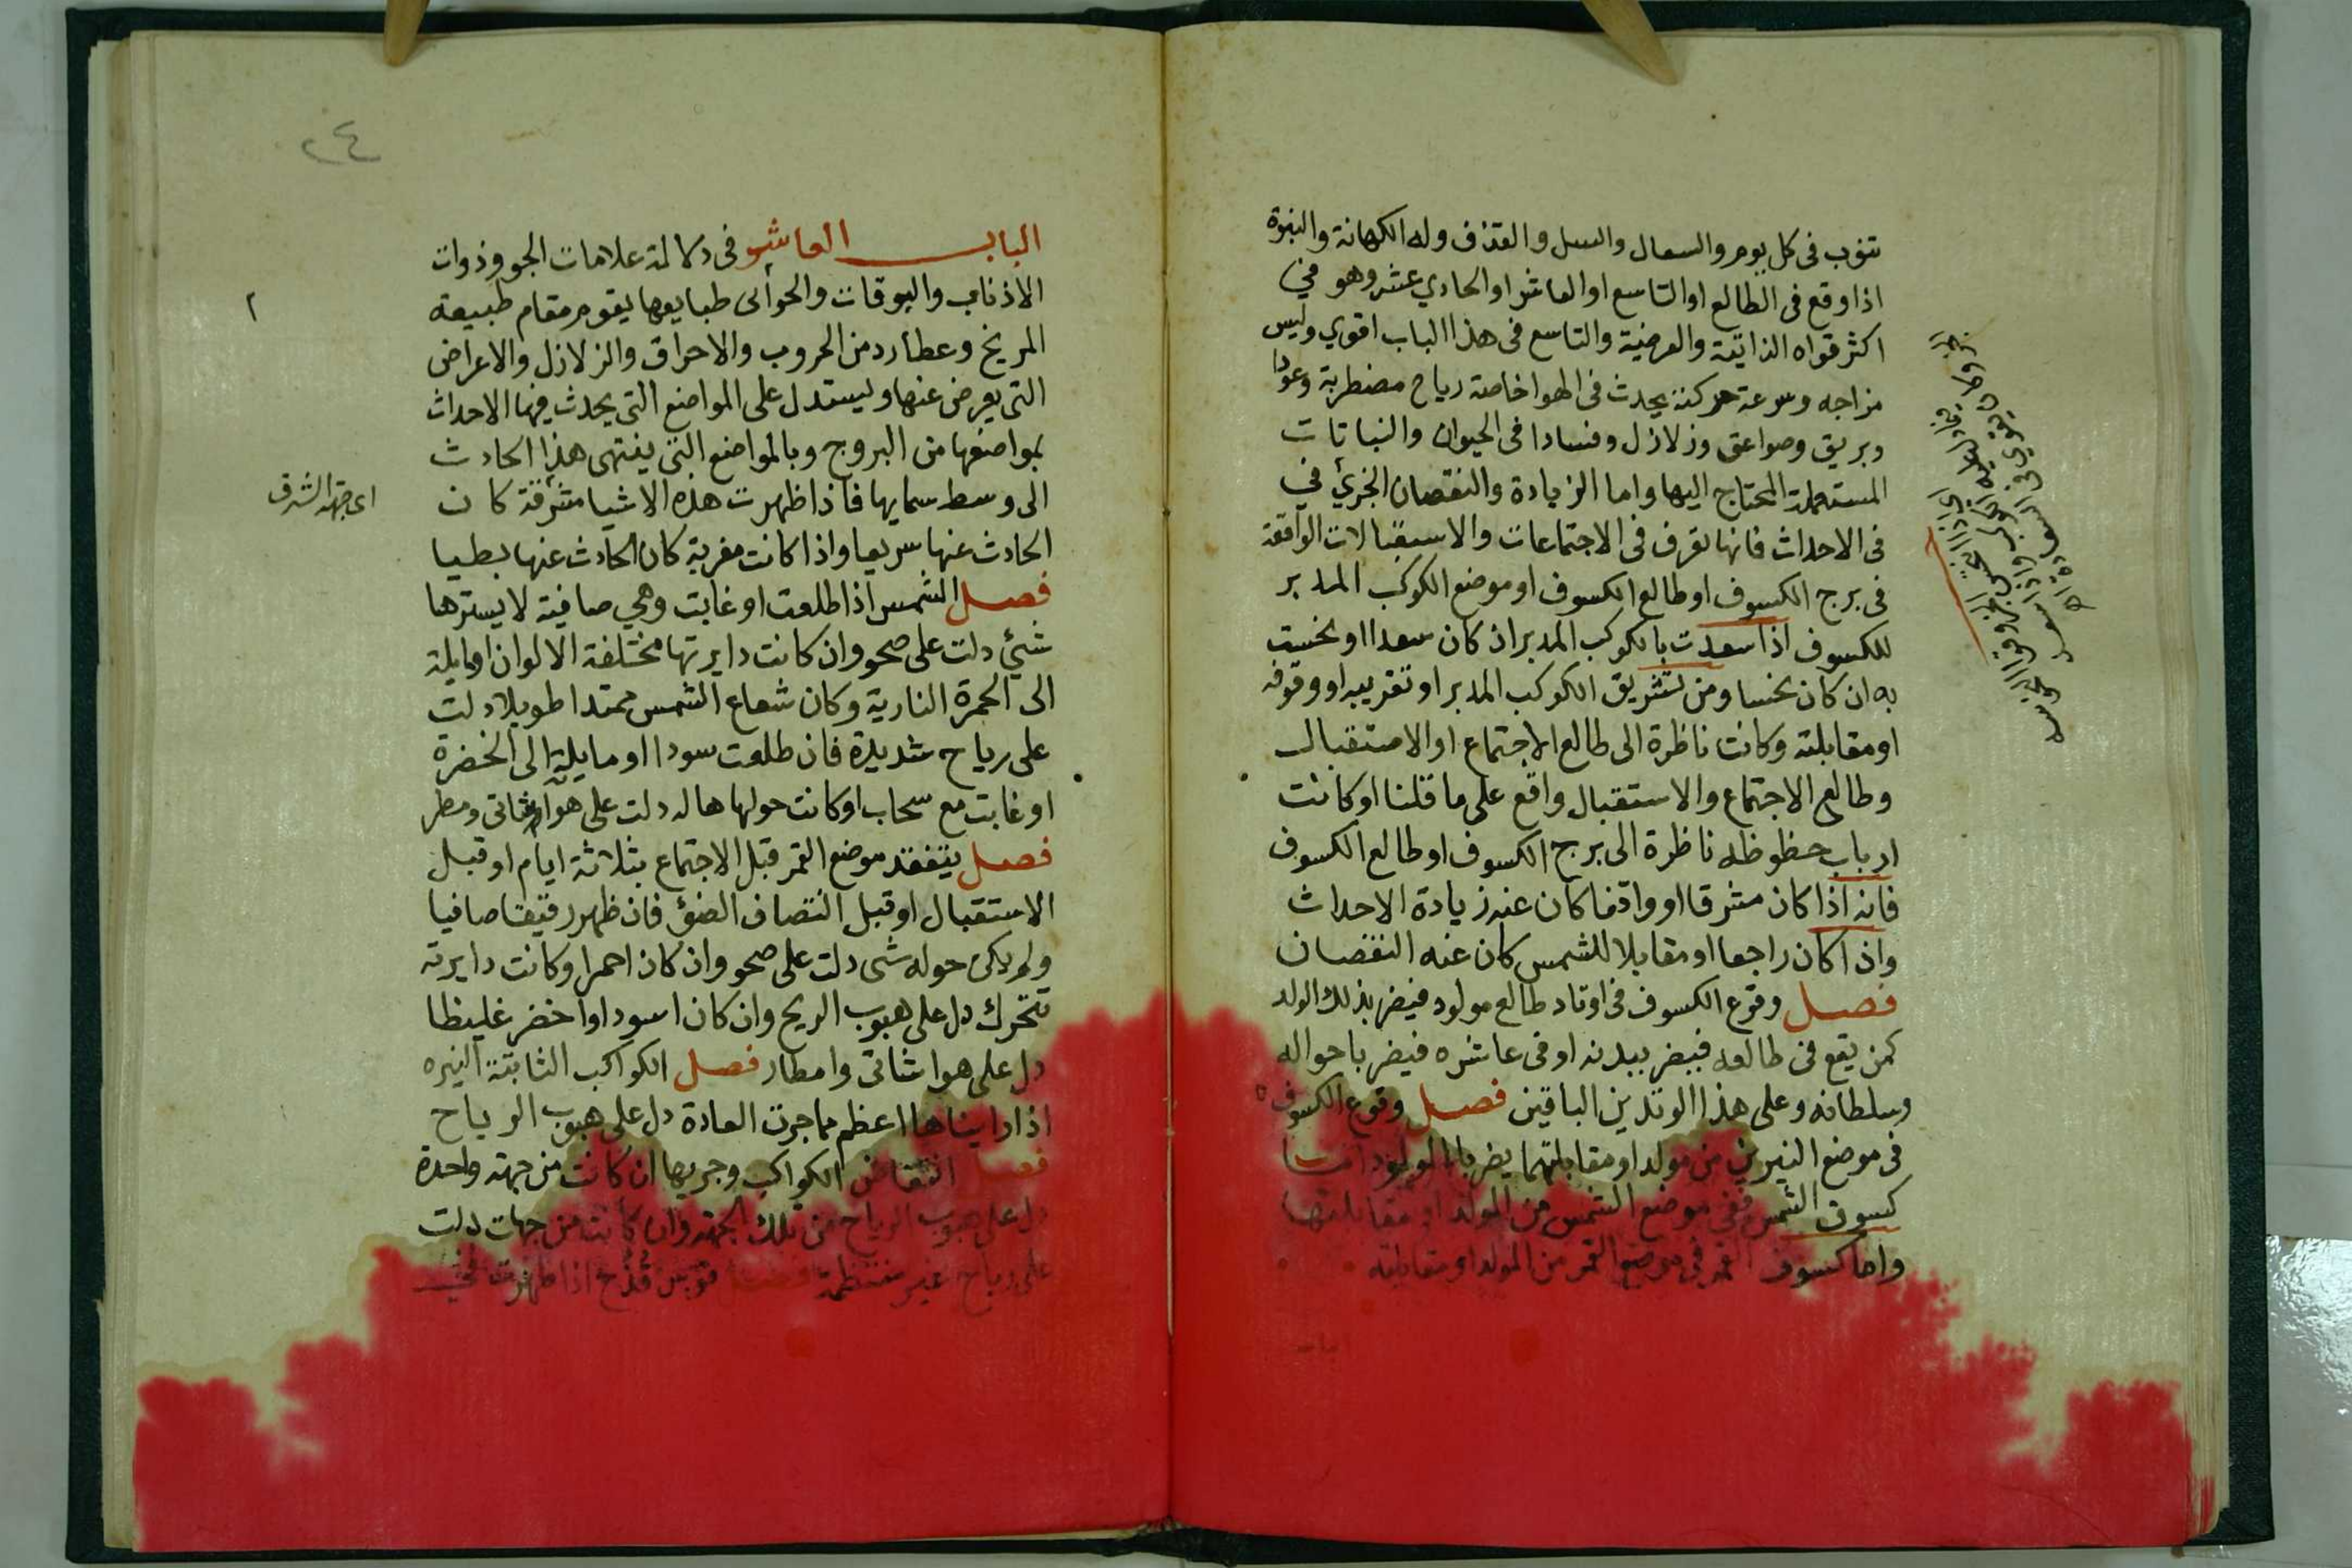 تنوب فى كل يوم والسعال والسل والقذف وله الكهانة والنبوة
اذا وقع فى الطالع او التاسع او العاشر او الحادي عشر وهو في
اكثر قواه الذاتية والعرضية والتاسع فى هذا الباب اقوي وليس
مزاجه وسرعة حركته يحدث فى الهوا خاصة رياح مضطربة وعودا
وبريق وصواعق وزلازل وفسادا فى الحيوان والنباتات
المستعملة المحتاج اليها واما الزيادة والنقصان الجزئ في
فى الاحداث فانها تعرف فى الاجتماعات والاستقبالات الواقعة
فى برج الكسوف او طالع الكسوف او موضع الكوكب المدبر
للكسوف اذا سعدت بالكوكب المدبر اذ كان سعدا او نخست
به ان كان نحسا ومن تشريق الكوكب المدبر او تغريبه او وقوفه
او مقابلته وكانت ناظرة الى طالع الاجتماع او الاستقبال
وطالع الاجتماع والاستقبال واقع على ما قلنا او كانت
ارباب حظوظه ناظرة الى برج الكسوف او طالع الكسوف
فانه اذا كان مشرقا او واقفا كان عنه زيادة الاحداث
واذا كان راجعا او مقابلا للشمس كان عنه النقصان
فصل وقوع الكسوف فى اوتاد طالع مولود فيضر بذلك الولد
كمن يقع فى طالعه فيضر ببدنه او فى عاشره فيضر باحواله
وسلطانه وعلى هذا الوتدين الباقين فصل وقوع الكسوف
فى موضع النيرين من مولد او مقابلتهما يضر بالمولود اما
كسوف الشمس ففى موضع الشمس من المولد او مقابلتها
واما كسوف القمر فى موضع القمر من المولد او مقابلته
٢٤
الباب العاشر فى دلالة علامات الجو وذوات
الاذناب والبوقات والحوأى طبايعها يقوم مقام طبيعة
المريخ وعطارد من الحروب والاحراق والزلازل والاعراض
التى يعرض عنها وليستدل على المواضع التى يحدث فيها الاحداث
بمواضعها من البروج وبالمواضع التى ينتهى هذا الحادث
الى وسط سمايها فاذا ظهرت هذه الاشيا مشرقة كان
اى جهة الشرق
الحادث عنها سريعا واذا كانت مغربة كان الحادث عنها بطيا
فصل الشمس اذا طلعت او غابت وهي صافية لا يسترها
شئ دلت على صحو وان كانت دايرتها مختلفة الالوان او مايلة
الى الحمرة النارية وكان شعاع الشمس ممتدا طويلا دلت
على رياح شديدة فان طلعت سودا او مايلة الى الخضرة
او غابت مع سحاب او كانت حولها هاله دلت على هوا شاتى ومطر
فصل يتفقد موضع القمر قبل الاجتماع بثلاثة ايام او قبل
الاستقبال او قبل انتصاف الضؤ فان ظهر رقيقا صافيا
ولم يكن حوله شى دلت على صحو وان كان احمرا وكانت دايرته
تتحرك دل على هبوب الريح وان كان اسود او اخضر غليظا
دل على هوا شاتى وامطار فصل الكواكب الثابتة النيره
اذا رايناها اعظم مما جرت العادة دل على هبوب الرياح
فصل انقضاض الكواكب وجريها ان كانت من جهة واحدة
دل على هبوب الرياح من تلك الجهة وان كانت من جهات دلت
على رياح غير منتظمة فصل قوس قُزُح اذا ظهرت في